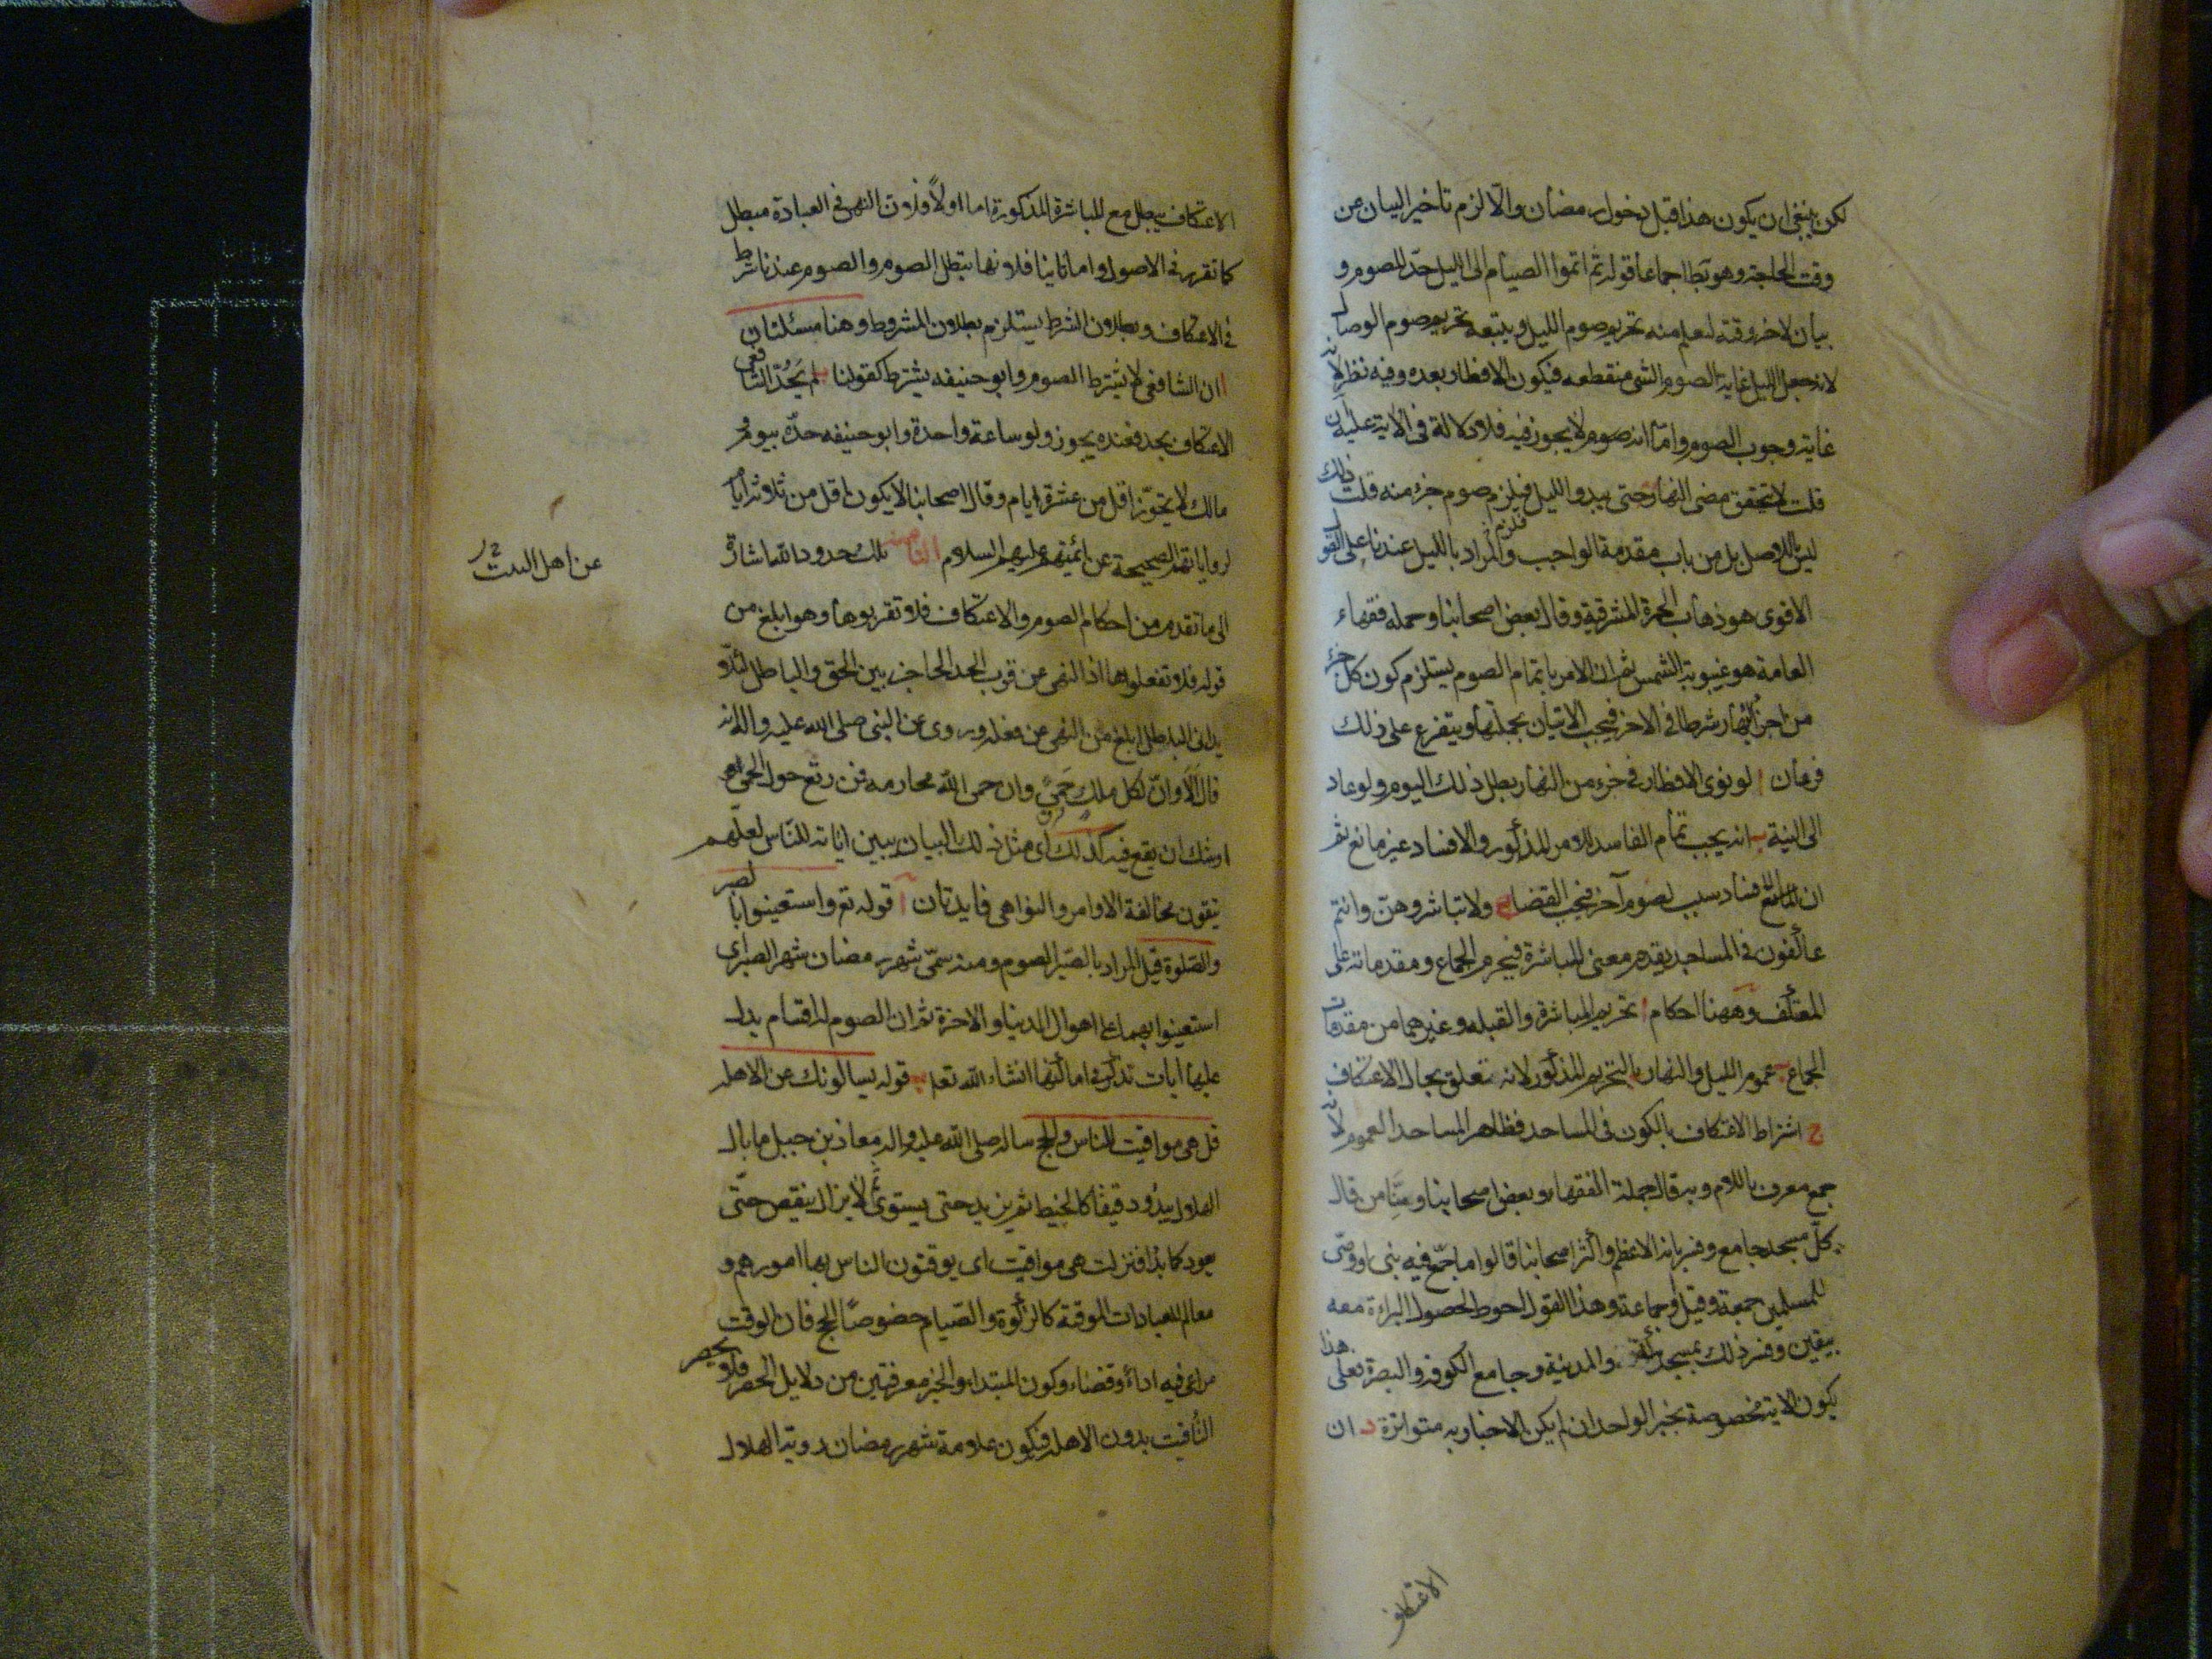 لكن ينبغي ان يكون هذا قبل دخول رمضان والّا لزم تاخير البيان عن
وقت الحاجة وهو بط اجماعا قوله ثم اتموا الصيام الى الليل حدّ للصوم و
بيان لاخر وقته لتعلم منه تحريم صوم الليل ويتبعه تحريم صوم الوصال
لانه جعل الليل غاية الصوم الشى منقطعه فيكون الافطار بعده وفيه نظر لانه
غاية وجوب الصوم وامّا انه صوم لا يجوز فيه فلا دلالة فى الاية عليه ان
قلت لا يتحقق مضى النهار حتى يبدو الليل فيلزم صوم جزء منه قلت ذلك
ليس بالاصل بل من باب مقدمة الواجب والمراد بالليل عندنا على القول
الاقوى هو ذهاب الحمرة المشرقية وقال بعض اصحابنا وجملة فقهاء
العامة هو غيبوبة الشمس ثم ان الامر باتمام الصوم يستلزم كون كل جزء
من اجزاء النهار شرطا فى الاخر فيجب الاتيان بجملتها ويتفرع على ذلك
فرعان ا لو نوى الافطار فى جزء من النهار بطل ذلك اليوم ولو عاد
الى النية ب انه يجب تمام الفاسد للامر المذكور والافساد غير مانع ثم
ان فساد سبب لصوم آخر فيجب القضا ولا تباشروهنّ وانتم
عاكفون فى المساجد يقدم معنى المباشرة فيحرم الجماع ومقدماته على
المعتكف وههنا احكام ا تحريم المباشرة والقبلة وغيرهما من مقدمات
الجماع ب عموم الليل والنهار بالتحريم المذكور لانه متعلق بحال الاعتكاف
ج اشتراط الاعتكاف بالكون فى المساجد فظاهر المساجد العموم لانه
جمع معرف باللام وبه قال جملة الفقهاء وبعض اصحابنا ومنّا من قال
كلّ مسجد جامع وفسر بانه الاعظم واكثر اصحابنا قالوا ما جمّع فيه نبى او وصّى
للمسلمين جمعة وقيل او جماعة وهذا القول احوط لحصول البراءة معه
بيقين وفسر ذلك بمسجد مكة والمدينة وجامع الكوفة والبصرة فعلى هذا
يكون الاية مخصوصة بخبر الواحد ان لم يكن الاخبار به متواترة د ان
الاعتكاف
الاعتكاف يبطل مع المباشرة المذكورة اما اولاً فلان النهى فى العبادة مبطل
كما تقرر فى الاصول واما ثانيا فلانها تبطل الصوم والصوم عندنا شرط
فى الاعتكاف وبطلان الشرط يستلزم بطلان المشروط وهنا مسئلتان
ا ان الشافعى لا يشترط الصوم وابو حنيفه يشترط كقولنا ب لم يحُدّ الشافعى
الاعتكاف بحد فعنده يجوز ولو ساعة واحدة وابو حنيفه حدّه بيوم و
مالك لا يجوّز اقل من عشرة ايام وقال اصحابنا لا يكون اقل من ثلاثة ايام
لرواياتهم الصحيحة عن ائمتهم عليهم السلام الثامنة تلك حدود الله اشارة
عن اهل البيت
الى ما تقدم من احكام الصوم والاعتكاف فلا تقربوها وهو ابلغ من
قوله فلا تفعلوها اذ النهى عن قرب الحد الحاجز بين الحق والباطل لئلا
يدانى الباطل ابلغ من النهى عن فعله وروى عن النبى صلى الله عليه واله انه
قال أَلا وانّ لكل ملك حَمِىً وان حمى الله محارمه فمن رتع حول الحمى
اوشك ان يقع فيه كذلك اى مثل ذلك البيان يبين اياته للنّاس لعلّهم
يتقون مخالفة الاوامر والنواهى فايدتان ا قوله تع واستعينوا بالصبر
والصّلوة قيل المراد بالصّبر الصوم ومنه سمّى شهر رمضان شهر الصبر اى
استعينوا بهما على اهوال الدنيا والاخرة ثم ان الصوم له اقسام يدل
عليها ايات تذكر فى اماكنها انشاء الله تعا ب قوله يسالونك عن الاهلة
قل هى مواقيت للناس والحج ساله صلى الله عليه واله معاذ بن جبل ما بال
الهلال يبدُو دقيقًا كالخيط ثم يزيد حتى يستوى ثمّ لا يزال ينقص حتّى
يعود كما بدا فنزلت هى مواقيت اى يوقتون الناس بها امورهم و
معالم للعبادات الموقتة كالزكوة والصّيام خصوصًا الحج فان الوقت
مراعى فيه اداءً وقضاء وكون المبتداء والخبر معرفتين من دلايل الحصر فلا يحصر
التّاقيت بدون الاهلة فيكون علامة شهر رمضان روية الهلال